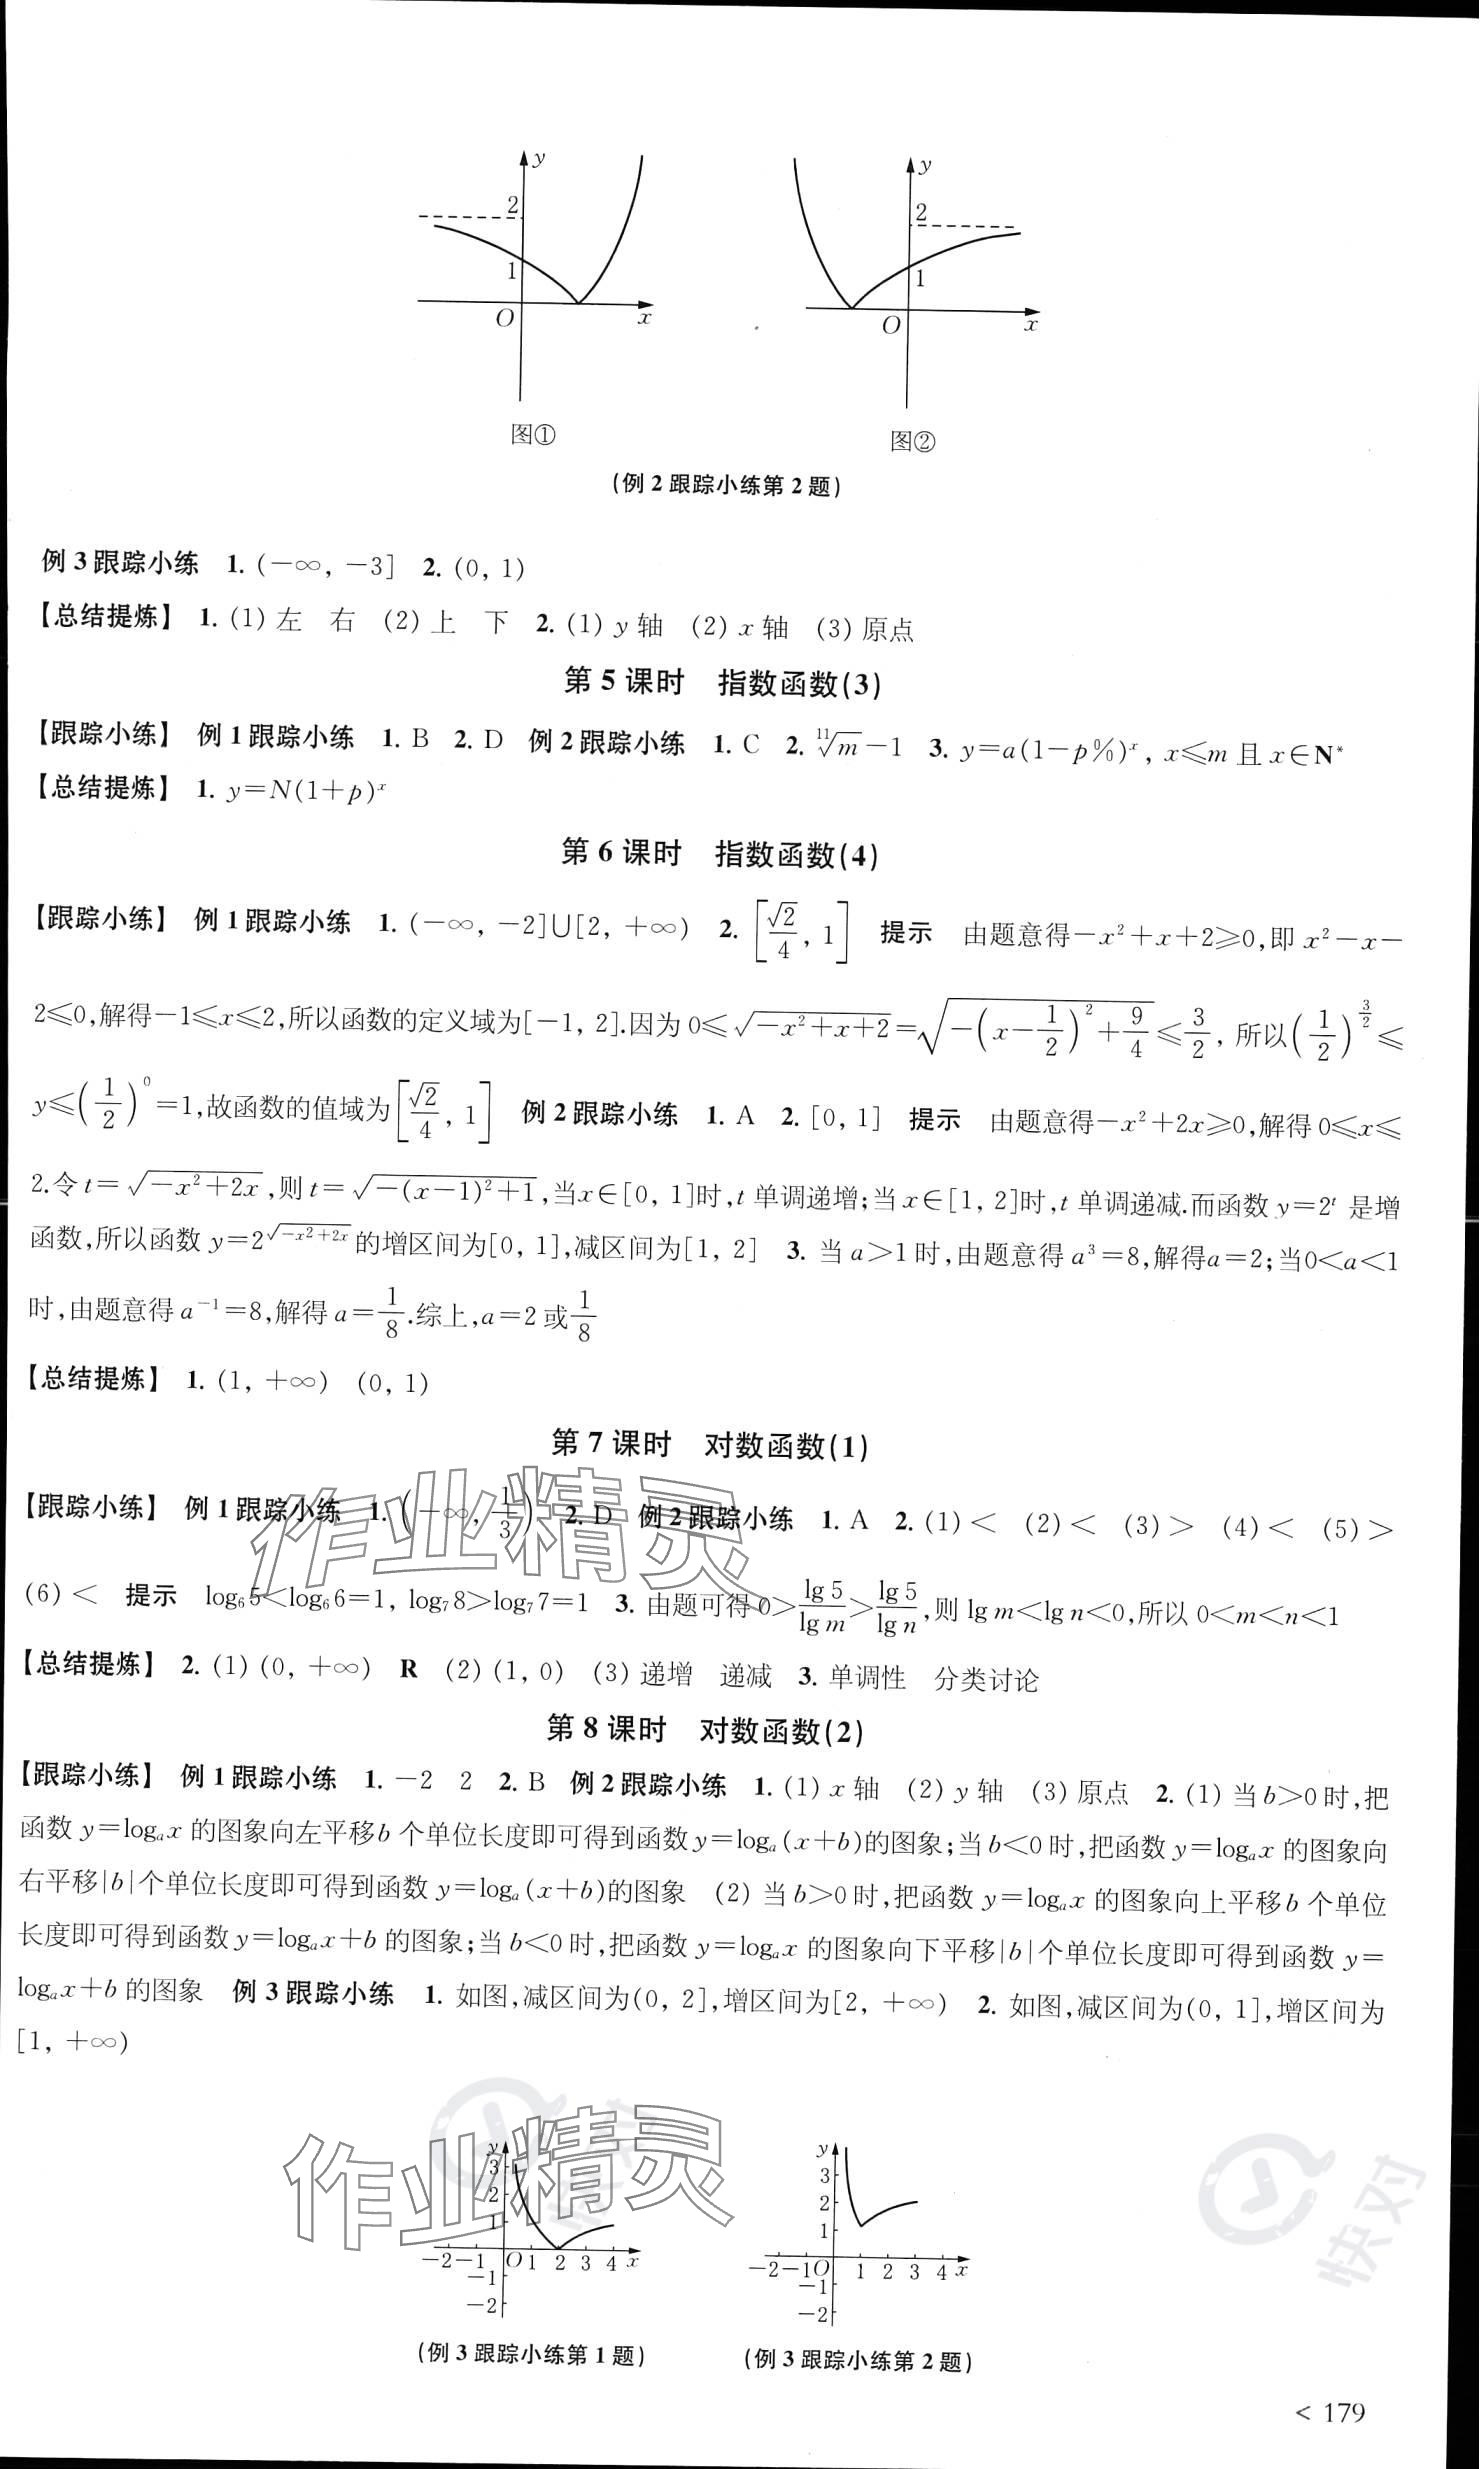 y
2
1
O
x
图①
y
2
1
O
x
图②
(例2跟踪小练第2题)
例3跟踪小练 1. (－∞, －3] 2. (0, 1)
【总结提炼】 1. (1) 左 右 (2) 上 下 2. (1) y 轴 (2) x 轴 (3) 原点
第5课时 指数函数(3)
【跟踪小练】 例1跟踪小练 1. B 2. D 例2跟踪小练 1. C 2. \sqrt[11]{m}－1 3. y＝a(1－p%)^x, x≤m 且 x∈N*
【总结提炼】 1. y＝N(1＋p)^x
第6课时 指数函数(4)
【跟踪小练】 例1跟踪小练 1. (－∞, －2]∪[2, ＋∞) 2. [√2/4, 1] 提示 由题意得－x²＋x＋2≥0,即 x²－x－
2≤0,解得－1≤x≤2,所以函数的定义域为[－1, 2].因为 0≤√(－x²＋x＋2)＝√(－(x－1/2)²＋9/4)≤3/2, 所以(1/2)^(3/2)≤
y≤(1/2)^0＝1,故函数的值域为[√2/4, 1] 例2跟踪小练 1. A 2. [0, 1] 提示 由题意得－x²＋2x≥0,解得 0≤x≤
2.令 t＝√(－x²＋2x),则 t＝√(－(x－1)²＋1),当x∈[0, 1]时,t 单调递增;当 x∈[1, 2]时,t 单调递减.而函数 y＝2^t 是增
函数,所以函数 y＝2^√(－x²＋2x) 的增区间为[0, 1],减区间为[1, 2] 3. 当 a＞1 时,由题意得 a³＝8,解得a＝2;当0＜a＜1
时,由题意得 a⁻¹＝8,解得 a＝1/8.综上,a＝2 或 1/8
【总结提炼】 1. (1, ＋∞) (0, 1)
第7课时 对数函数(1)
【跟踪小练】 例1跟踪小练 1. (－∞, 1/3) 2. D 例2跟踪小练 1. A 2. (1)＜ (2)＜ (3)＞ (4)＜ (5)＞
(6)＜ 提示 log₆5＜log₆6＝1, log₇8＞log₇7＝1 3. 由题可得 0＞lg 5/lg m＞lg 5/lg n,则 lg m＜lg n＜0,所以 0＜m＜n＜1
【总结提炼】 2. (1) (0, ＋∞) R (2) (1, 0) (3) 递增 递减 3. 单调性 分类讨论
第8课时 对数函数(2)
【跟踪小练】 例1跟踪小练 1. －2 2 2. B 例2跟踪小练 1. (1) x 轴 (2) y 轴 (3) 原点 2. (1) 当 b＞0 时,把
函数 y＝logₐx 的图象向左平移b 个单位长度即可得到函数 y＝logₐ(x＋b)的图象;当 b＜0 时,把函数 y＝logₐx 的图象向
右平移|b|个单位长度即可得到函数 y＝logₐ(x＋b)的图象 (2) 当 b＞0 时,把函数 y＝logₐx 的图象向上平移 b 个单位
长度即可得到函数 y＝logₐx＋b 的图象;当 b＜0 时,把函数 y＝logₐx 的图象向下平移|b|个单位长度即可得到函数 y＝
logₐx＋b 的图象 例3跟踪小练 1. 如图,减区间为(0, 2],增区间为[2, ＋∞) 2. 如图,减区间为(0, 1],增区间为
[1, ＋∞)
作业精灵
作业精灵
快对
快对
y
3
2
1
－2－1 O 1 2 3 4 x
－1
－2
(例3跟踪小练第1题)
y
3
2
1
－2－1O 1 2 3 4 x
－1
－2
(例3跟踪小练第2题)
＜ 179